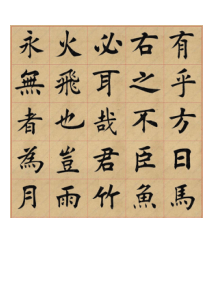 永火必右有
無飛耳之乎
者也哉不方
為豈君臣曰
月雨竹魚馬